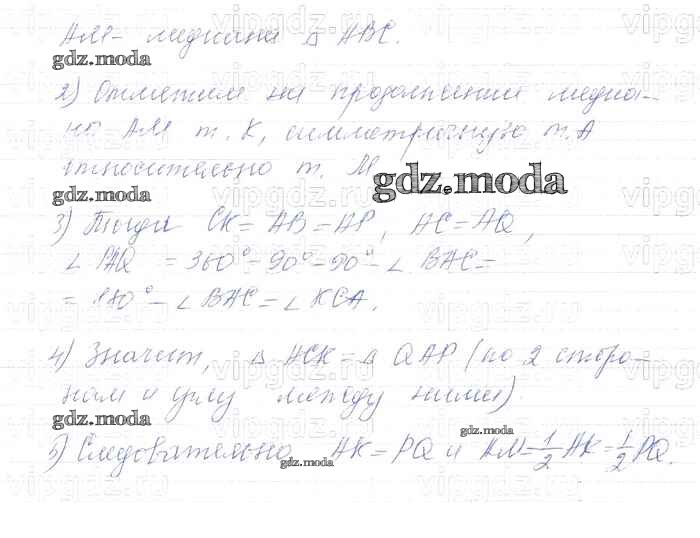 AM - медиана △ ABC.
gdz.moda
2) Отметим на продолжении медиа-
ны AM т. K, симметричную т. A
относительно т. M
gdz.moda
gdz.moda
3) Тогда CK = AB = AP, AC = AQ,
∠ PAQ = 360° - 90° - 90° - ∠ BAC =
= 180° - ∠ BAC = ∠ KCA.
4) Значит, △ ACK = △ QAP (по 2 сторо-
нам и углу между ними).
gdz.moda
gdz.moda
5) Следовательно AK = PQ и AM = 1/2 AK = 1/2 PQ.
gdz.moda